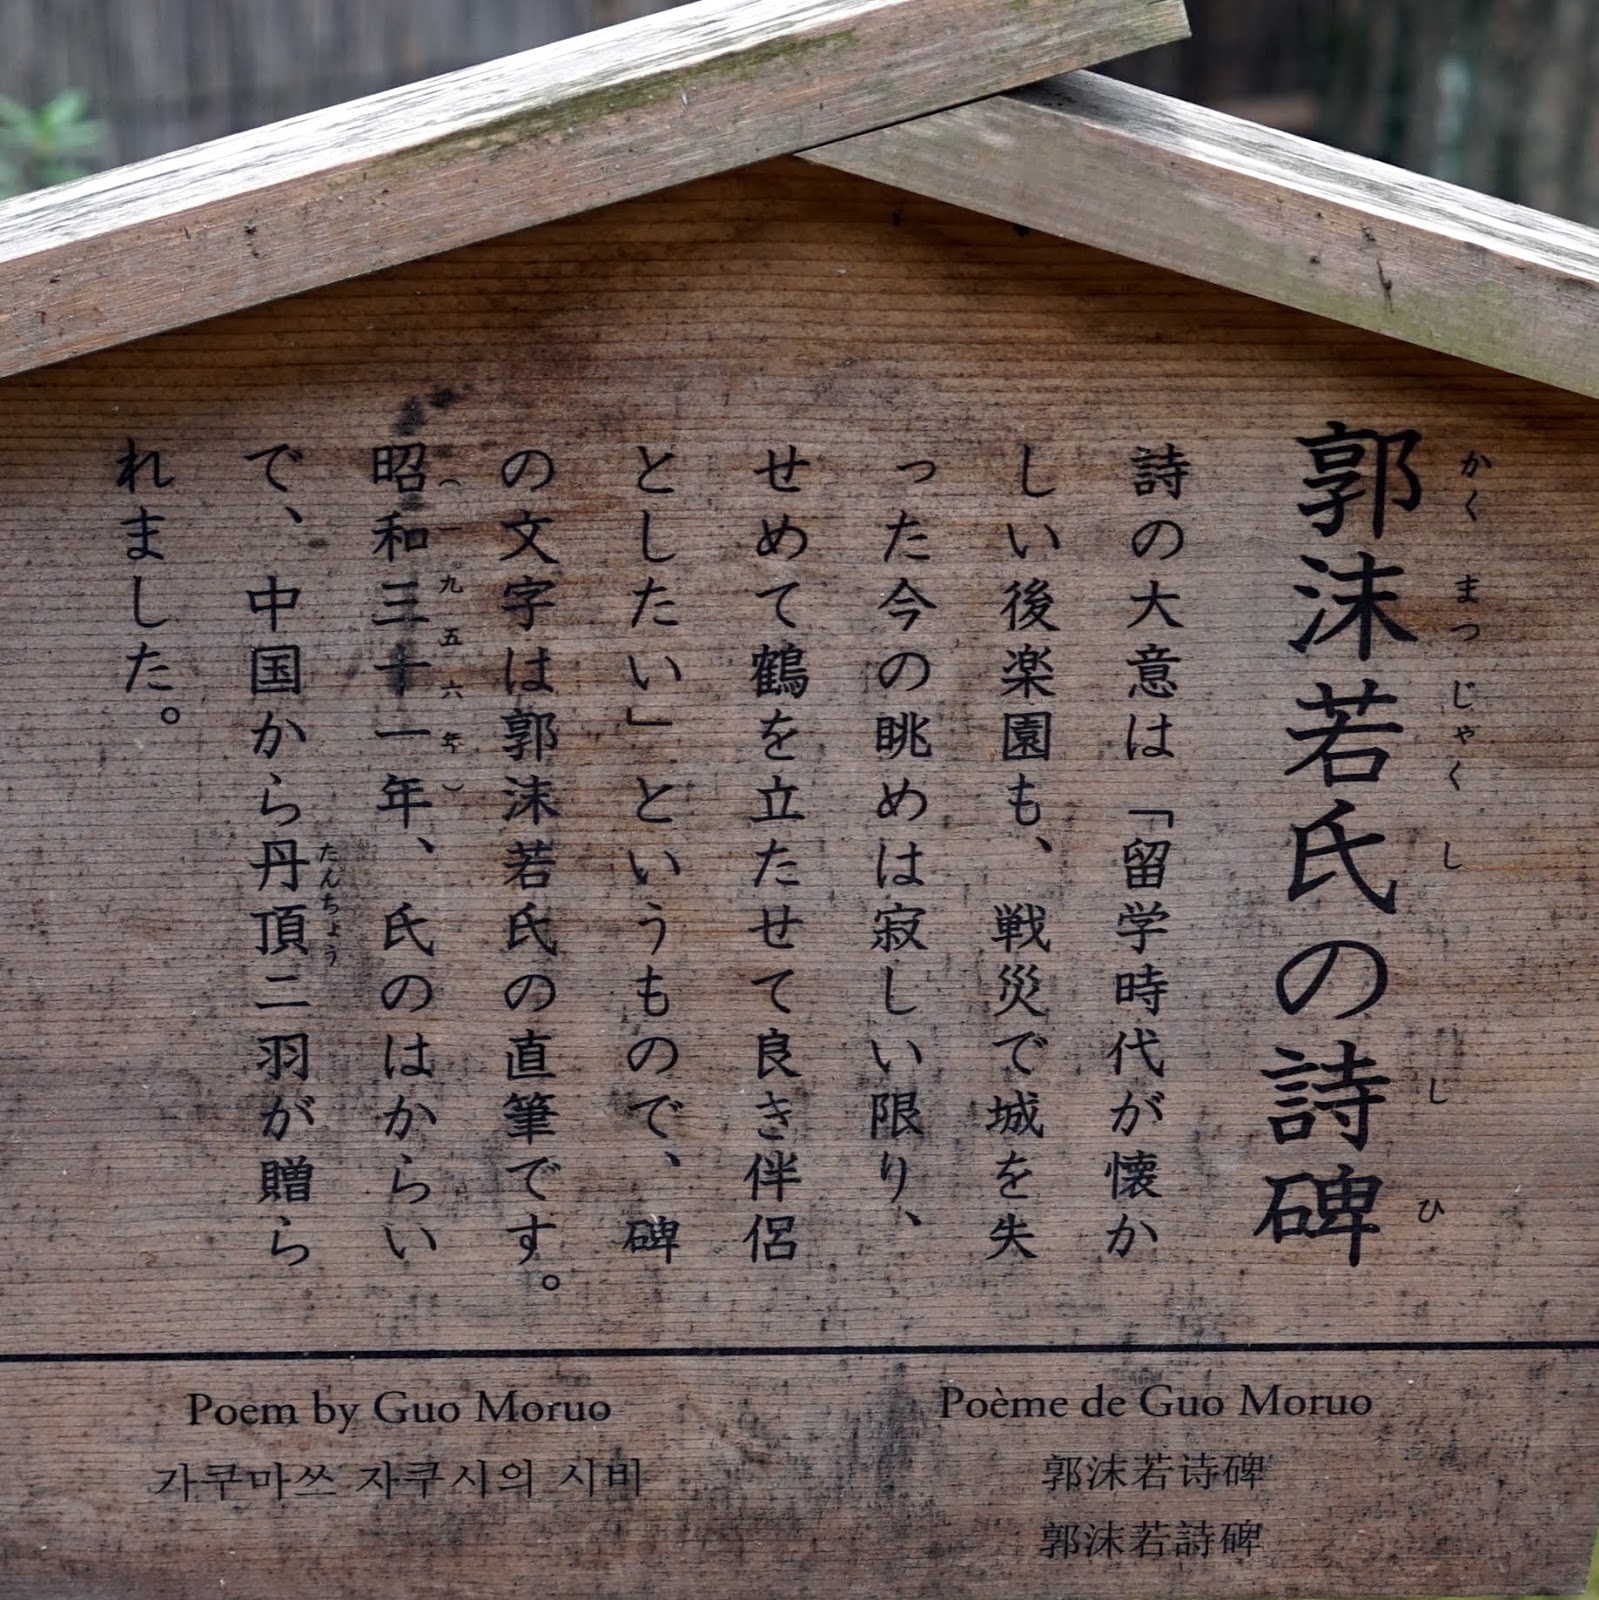 郭沫若氏の詩碑
かくまつじゃくししひ
詩の大意は「留学時代が懐か
しい後楽園も、戦災で城を失
った今の眺めは寂しい限り、
せめて鶴を立たせて良き伴侶
としたい」というもので、碑
の文字は郭沫若氏の直筆です。
昭和三十一年、氏のはからい
（一九五六年）
で、中国から丹頂二羽が贈ら
たんちょう
れました。
Poem by Guo Moruo
가쿠마쓰 자쿠시의 시비
Poème de Guo Moruo
郭沫若诗碑
郭沫若詩碑